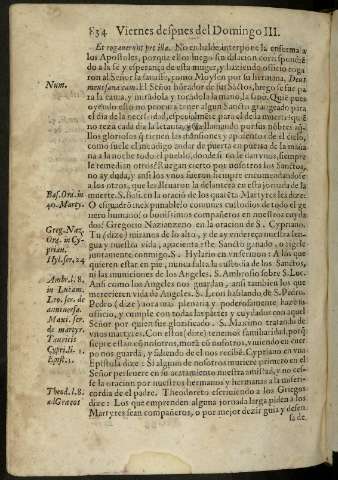 834 Viernes despues del Domingo III.
Et rogauerunt pro illa. No en balde interpone la enferma a
los Apostoles, porque ellos luego sin dilacion correspondiẽ
do a la fè y esperança desta muger, y haziendo oficio rogaron
al Señor la sanasse, como Moysen por su hermana, Deus
Num.
mens sana eam. El Señor hõrador de sus Sãctos, luego se fue pa
ra la cama, y mirãdola y tocãdola la mano, la sanò. Què pues
ayudo esto nò procura tener algun Sancto grangeado para
el dia de la necessidad, especialmẽte para el de la muerte? què
no reza cada dia la letania, y llamando por sus nõbres aq̃-
llos gloriosos q̃ tienen las mansiones y aposentos de el cielo,
como suele el mendigo andar de puerta en puerta de la maña
na a la noche todo el pueblo, donde si no le dan vnos, siempre
le remedian otros? Ruegan cierto por nosotros los Sanctos,
no ay duda, y aun si los vnos fuessen siempre encomendandose
a los otros, que les lleuaron la delantera en esta jornada de la
Bas. Ora. in
40. Marty.
muerte. S. Bas. en la oracion de los quarẽta Martyres les dize:
O siquadrones inumerables comunes custodios de todo el ge
nero humano! o bonissimos compañeros en nuestros cuyda
dos! Gregorio Nazianzeno en la oracion de S. Cypriano.
Greg. Naz.
Ora. in Cy-
prian.
Hyl. ser. 24
Tu (dize) miranos de lo alto, y de ay endereça nuestra len
gua y nuestra vida, apacienta este Sancto ganado, o rigele
juntamente conmigo. S. Hylario en vn sermon: A los que
quieren estar en pie, nunca falta la custodia de los Sanctos,
ni las municiones de los Angeles. S. Ambrosio sobre S. Luc.
Ambr. l. 8.
in Lucam.
Leo. ser. de
anniuersa.
Maxi. ser.
de martyr.
Tauricis
Cypri. li. 1.
Epist. 1.
Ansi como los Angeles nos guardan, ansi tambien los que
merecieren vida de Angeles. S. Leon hablando de S. Pedro.
Pedro (dize) aora mas plenaria y poderosamente, haze su
officio, y cumple con todas las partes y cuydados con aquel
Señor por quien fue glorificado. S. Maximo tratando de
vnos martyres. Con estos (dize) tenemos familiaridad, porq̃
siẽpre estan cõ nosotros, morã cõ nosotros, viuiendo en cuer
po nos guardã, y saliendo de el nos recibẽ. Cypriano en vna
Epistola dize: Si alguno de nosotros muriere primero en el
Señor perseuere en su acatamiento nuestra amistad, y no ces-
se la oracion por nuestros hermanos y hermanas a la miseri-
cordia de el padre. Theodoreto escriuiendo a los Griegos
Theod. l. 8.
ad Græcos
dize: Los que emprenden alguna jornada larga piden a los
Martyres sean compañeros, o por mejor dezir guia y defen
sa de